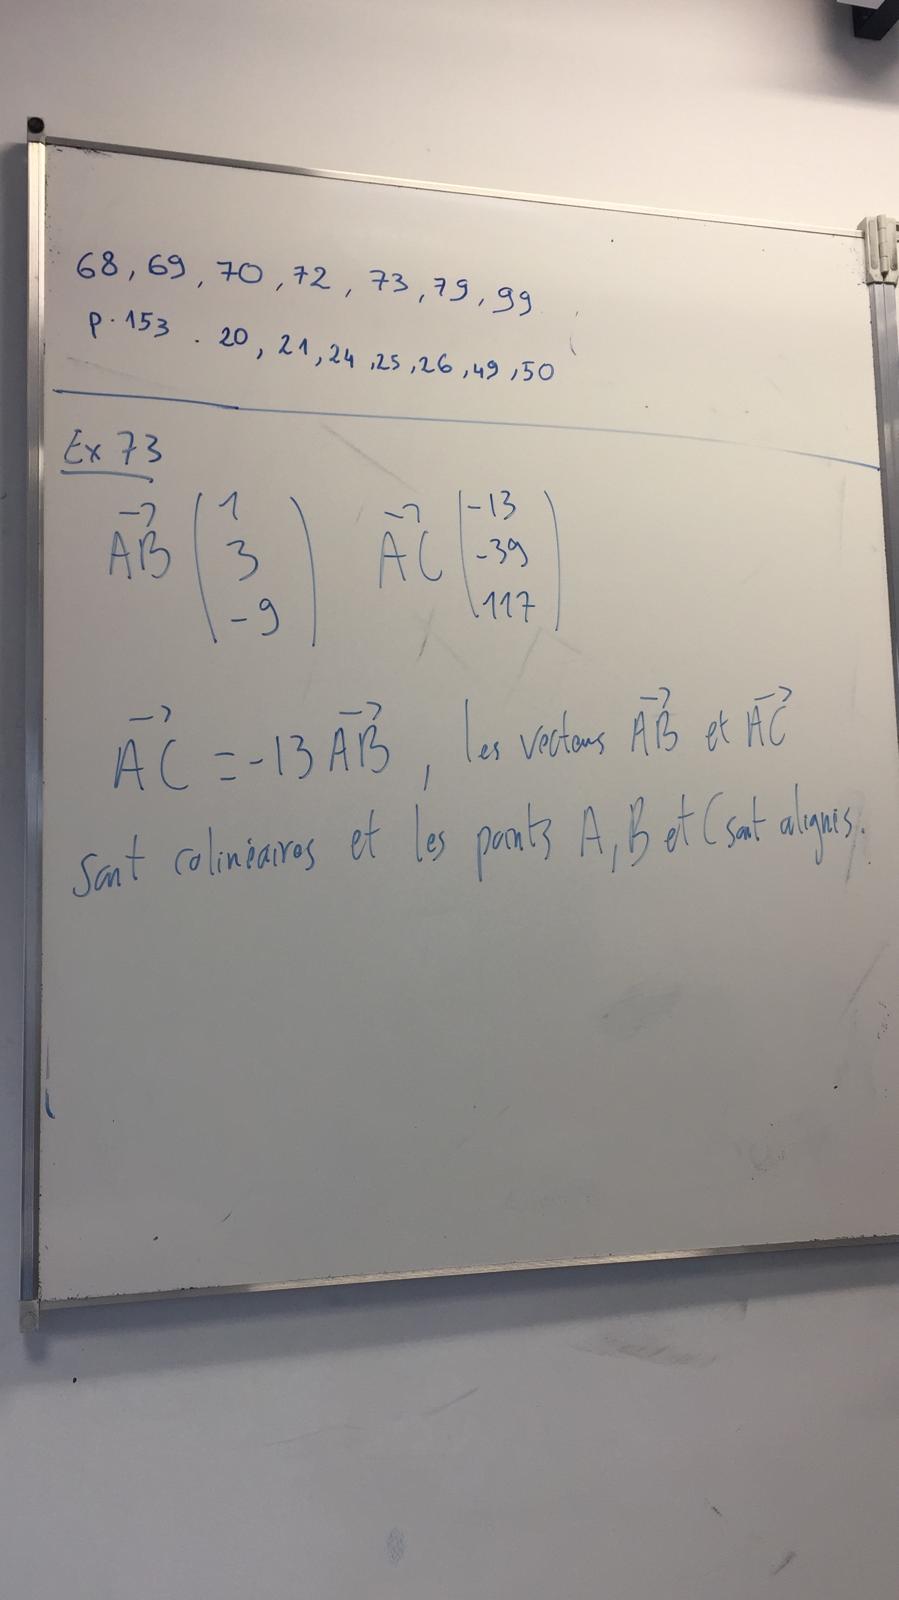 68, 69, 70, 72, 73, 79, 99
p. 153 . 20, 21, 24, 25, 26, 49, 50
Ex 73
AB⃗ (1 3 -9) AC⃗ (-13 -39 117)
AC⃗ = -13 AB⃗, les vecteurs AB⃗ et AC⃗
sont colinéaires et les points A, B et C sont alignés.